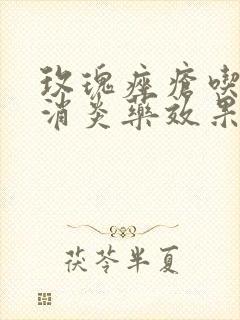 玫瑰痤瘡喫
消炎藥效果
茯苓半夏